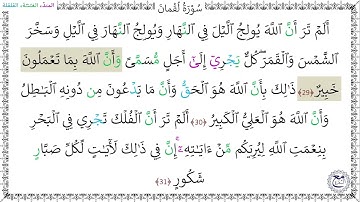 سُورَةُ لُقْمَانَ
المدّ، الغنّـة، القلقلة
أَلَمْ تَرَ أَنَّ اللَّهَ يُولِجُ الَّيْلَ فِي النَّهَارِ وَيُولِجُ النَّهَارَ فِي الَّيْلِ وَسَخَّرَ
الشَّمْسَ وَالْقَمَرَ ۖ كُلٌّ يَجْرِىٓ إِلَىٰٓ أَجَلٍ مُّسَمًّى وَأَنَّ اللَّهَ بِمَا تَعْمَلُونَ
خَبِيرٌ ﴿29﴾ ذَٰلِكَ بِأَنَّ اللَّهَ هُوَ الْحَقُّ وَأَنَّ مَا يَدْعُونَ مِن دُونِهِ الْبَٰطِلُ
وَأَنَّ اللَّهَ هُوَ الْعَلِيُّ الْكَبِيرُ ﴿30﴾ أَلَمْ تَرَ أَنَّ الْفُلْكَ تَجْرِي فِي الْبَحْرِ
بِنِعْمَتِ اللَّهِ لِيُرِيَكُم مِّنْ ءَايَٰتِهِۦٓ ۚ إِنَّ فِي ذَٰلِكَ لَءَايَٰتٍ لِّكُلِّ صَبَّارٍ
شَكُورٍ ﴿31﴾